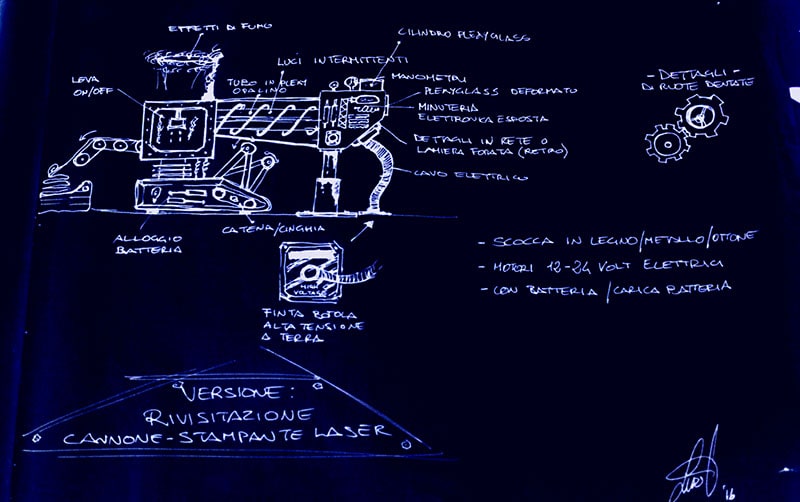 EFFETTI DI FUMO
CILINDRO PLEXYGLASS
LUCI INTERMITTENTI
LEVA
ON/OFF
TUBO IN PLEXY
OPALINO
MANOMETRI
PLEXYGLASS DEFORMATO
MINUTERIA
ELETTRONICA ESPOSTA
DETTAGLI IN RETE O
LAMIERA FORATA (RETRO)
CAVO ELETTRICO
- DETTAGLI -
DI RUOTE DENTATE
ALLOGGIO
BATTERIA
CATENA/CINGHIA
HIGH
VOLTAGE
FINTA BOTOLA
ALTA TENSIONE
A TERRA
- SCOCCA IN LEGNO/METALLO/OTTONE
- MOTORI 12-24 VOLT ELETTRICI
- CON BATTERIA / CARICA BATTERIA
VERSIONE:
RIVISITAZIONE
CANNONE-STAMPANTE LASER
'16